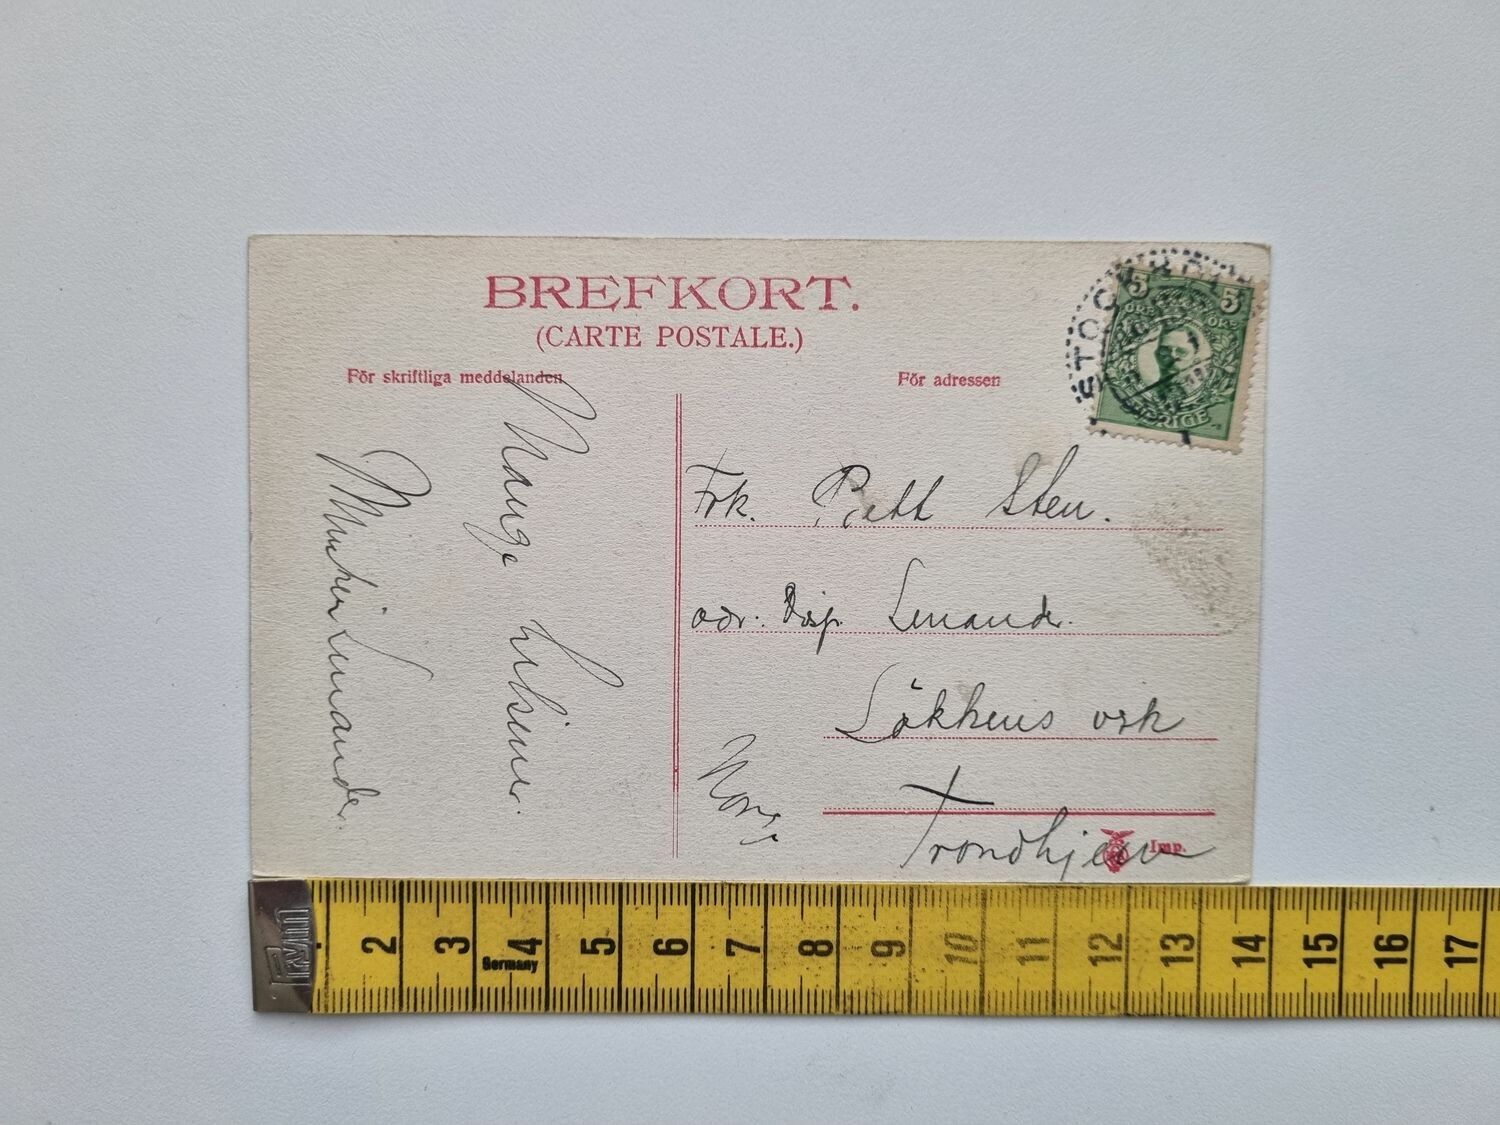 BREFKORT.
(CARTE POSTALE.)
För skriftliga meddelanden
För adressen
5 5
ÖRE ÖRE
SVERIGE
STOCKHOLM
Mange
Linander.
Frk. Sten.
adr. Disp. Linander.
Lökkens
Norge
Trondhjem
Imp.
2 3 4 5 6 7 8 9 10 11 12 13 14 15 16 17
Germany